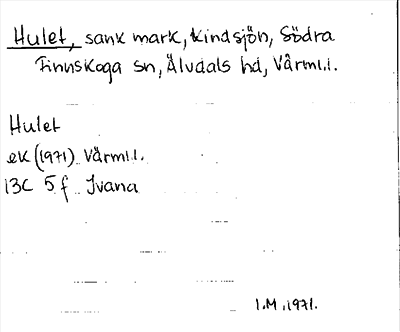 Hulet, sank mark, Kindsjön, Södra
Finnskoga sn, Älvdals hd, Värml.l.
Hulet
ek (1971) Värml.l.
13C 5 f Ivana
I.M. 1971.